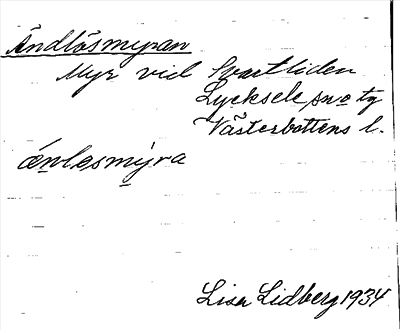 Ändlösmyran
Myr vid Svartliden
Lycksele sn o tg
Västerbottens l.
änlesmýra
Lisa Lidberg 1934